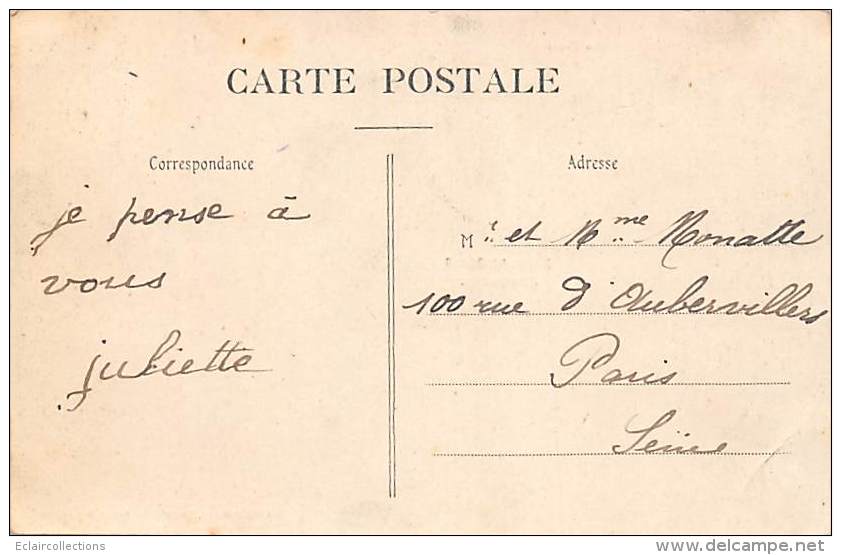 CARTE POSTALE
Correspondance
je pense à
vous
juliette
Adresse
Mr et Mme Monatte
100 rue d'Aubervillers
Paris
Seine
Eclaircollections
www.delcampe.net